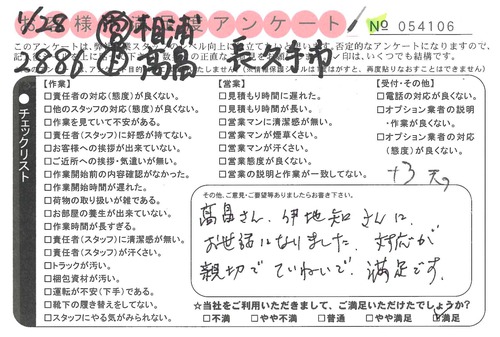 アンケート
No 054106
1/28 相浦
2886 髙畠 長久手市
チェックリスト
【作業】
□責任者の対応(態度)が良くない。
□他のスタッフの対応(態度)が良くない。
□作業を見ていて不安がある。
□責任者(スタッフ)に好感が持てない。
□お客様への挨拶が出来ていない。
□ご近所への挨拶・気遣いが無い。
□作業開始前の内容確認がなかった。
□作業開始時間が遅れた。
□荷物の取り扱いが雑である。
□お部屋の養生が出来ていない。
□作業時間が長すぎる。
□責任者(スタッフ)に清潔感が無い。
□責任者(スタッフ)が汗くさい。
□トラックが汚い。
□梱包資材が汚い。
□運転が不安(下手)である。
□靴下の履き替えをしてない。
□スタッフにやる気がみられない。
【営業】
□見積もり時間に遅れた。
□見積もり時間が長い。
□営業マンに清潔感が無い。
□営業マンが煙草くさい。
□営業マンが汗くさい。
□営業態度が良くない。
□営業の説明と作業が一致してない。
【受付・その他】
□電話の対応が良くない。
□オプション業者の説明
・作業が良くない。
□オプション業者の対応
(態度)が良くない。
+3点
その他、ご意見・ご要望等ありましたらお書き下さい。
髙畠さん、伊地知さんに、
お世話になりました。対応が
親切でていねいで、満足です。
☆当社をご利用いただきまして、ご満足いただけたでしょうか?
□不満 □やや不満 □普通 □やや満足 ☑満足